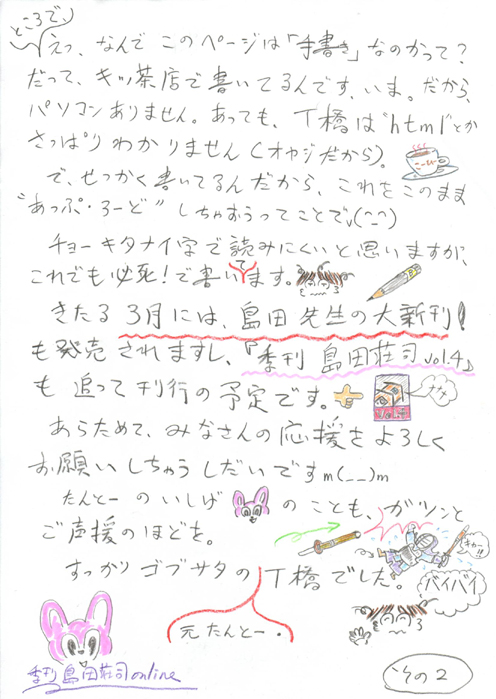 ところで、
えっ、なんで このページは「手書き」なのかって？
だって、キッ茶店で書いてるんです、いま。だから、
パソコンありません。あっても、T橋は"html"とか
さっぱりわかりません（オヤジだから）。
で、せっかく書いてるんだから、これをこのまま
"あっぷ・ろーど" しちゃおうってことでv(^-^)
チョーキタナイ字で読みにくいと思いますが、
これでも必死！で書いてます。
きたる 3月には、島田先生の大新刊！
も発売されますし、『季刊 島田荘司 vol.4』
も 追って刊行の予定です。
あらためて、みなさんの応援をよろしく
お願いしちゃうしだいですm(__)m
たんとーのいしば のことも、ガツンと
ご声援のほどを。
すっかりゴブサタのT橋でした。
バイバイ
元たんとー。
季刊 島田荘司 online
その2